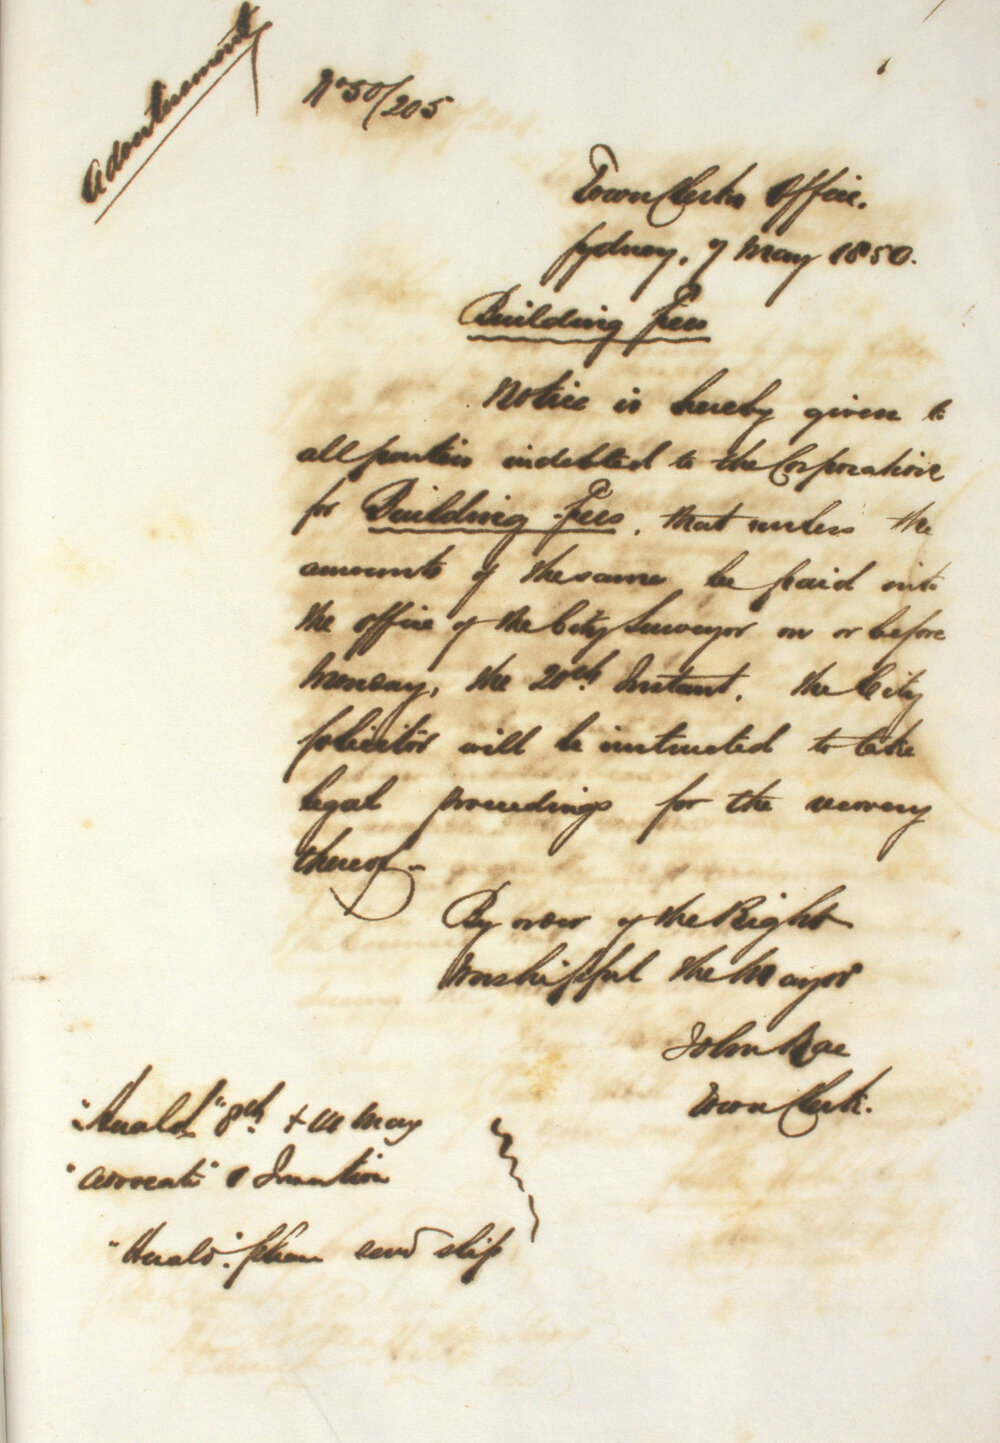 Advertisement
No 50/205
Town Clerks Office.
Sydney, 7 May 1850.
Building Fees
Notice is hereby given to
all parties indebted to the Corporation
for Building Fees, that unless the
amounts of the same be paid into
the office of the City Surveyor on or before
Monday, the 20th Instant, the City
Solicitor will be instructed to take
legal proceedings for the recovery
thereof.
By order of the Right
Worshipful the Mayor
John Rae
Town Clerk.
"Herald" 8th + May
"Advocate" Insertion
"Herald". please send slip